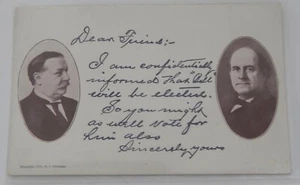 Dear Friend:-
I am confidentially
informed that "Bill"
will be elected.
So you might
as well vote for
him also
Sincerely yours